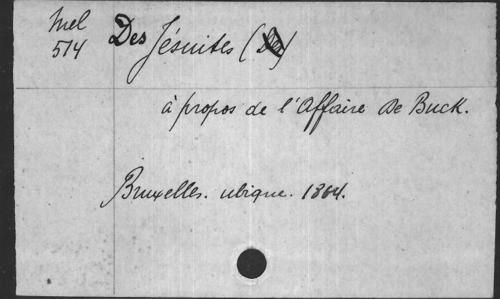 Mel
514
Des Jésuites ( )
à propos de l'Affaire De Buck.
Bruxelles. ubique. 1864.